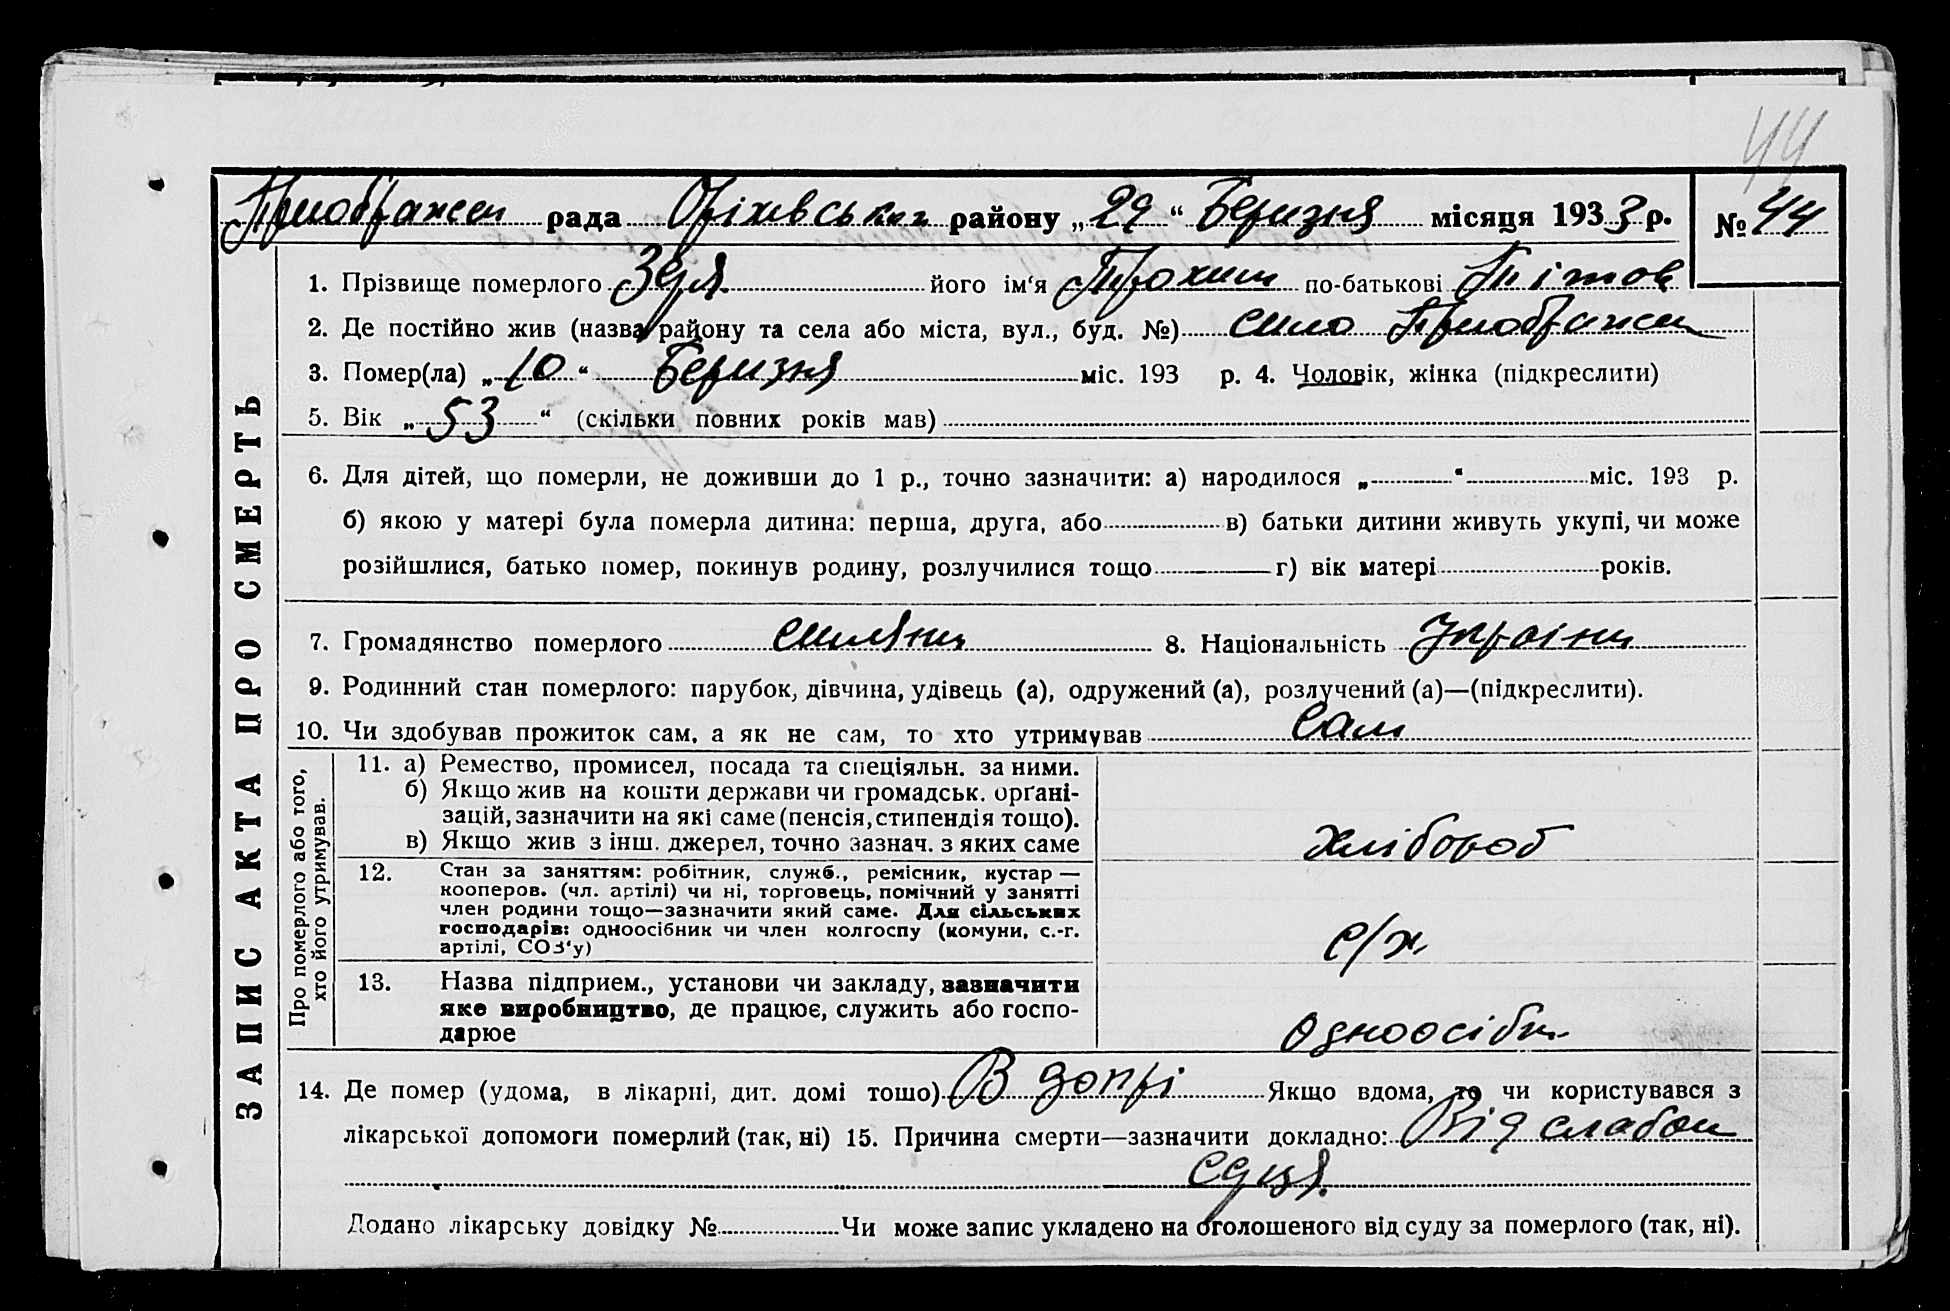 44
Приображен рада Оріхівськаг району „ 29 “ Березня місяця 1933 р. № 44
ЗАПИС АКТА ПРО СМЕРТЬ
1. Прізвище померлого Зуя його ім'я Трохим по-батькові Тітов
2. Де постійно жив (назва району та села або міста, вул., буд. №) село Приображен
3. Помер(ла) „ 10 “ Березня міс. 193 р. 4. Чоловік, жінка (підкреслити)
5. Вік „ 53 “ (скільки повних років мав)
6. Для дітей, що померли, не доживши до 1 р., точно зазначити: а) народилося „ “ міс. 193 р.
б) якою у матері була померла дитина: перша, друга, або в) батьки дитини живуть укупі, чи може
розійшлися, батько помер, покинув родину, розлучилися тощо г) вік матері років.
7. Громадянство померлого селянин 8. Національність Україн
9. Родинний стан померлого: парубок, дівчина, удівець (а), одружений (а), розлучений (а)—(підкреслити).
10. Чи здобував прожиток сам, а як не сам, то хто утримував сам
Про померлого або того,
хто його утримував.
11. а) Ремество, промисел, посада та спеціяльн. за ними.
б) Якщо жив на кошти держави чи громадськ. орґані-
зацій, зазначити на які саме (пенсія, стипендія тощо).
в) Якщо жив з інш. джерел, точно зазнач. з яких саме
хлібороб
12. Стан за заняттям: робітник, служб., ремісник, кустар —
кооперов. (чл. артілі) чи ні, торговець, помічний у занятті
член родини тощо—зазначити який саме. Для сільських
господарів: одноосібник чи член колгоспу (комуни, с.-г.
артілі, СОЗ'у)
с/х
13. Назва підприєм., установи чи закладу, зазначити
яке виробництво, де працює, служить або госпо-
дарює
одноосібн.
14. Де помер (удома, в лікарні, дит. домі тощо) В допрі Якщо вдома, то чи користувався з
лікарської допомоги померлий (так, ні) 15. Причина смерти—зазначити докладно: Від слабон
сдця.
Додано лікарську довідку № Чи може запис укладено на оголошеного від суду за померлого (так, ні).